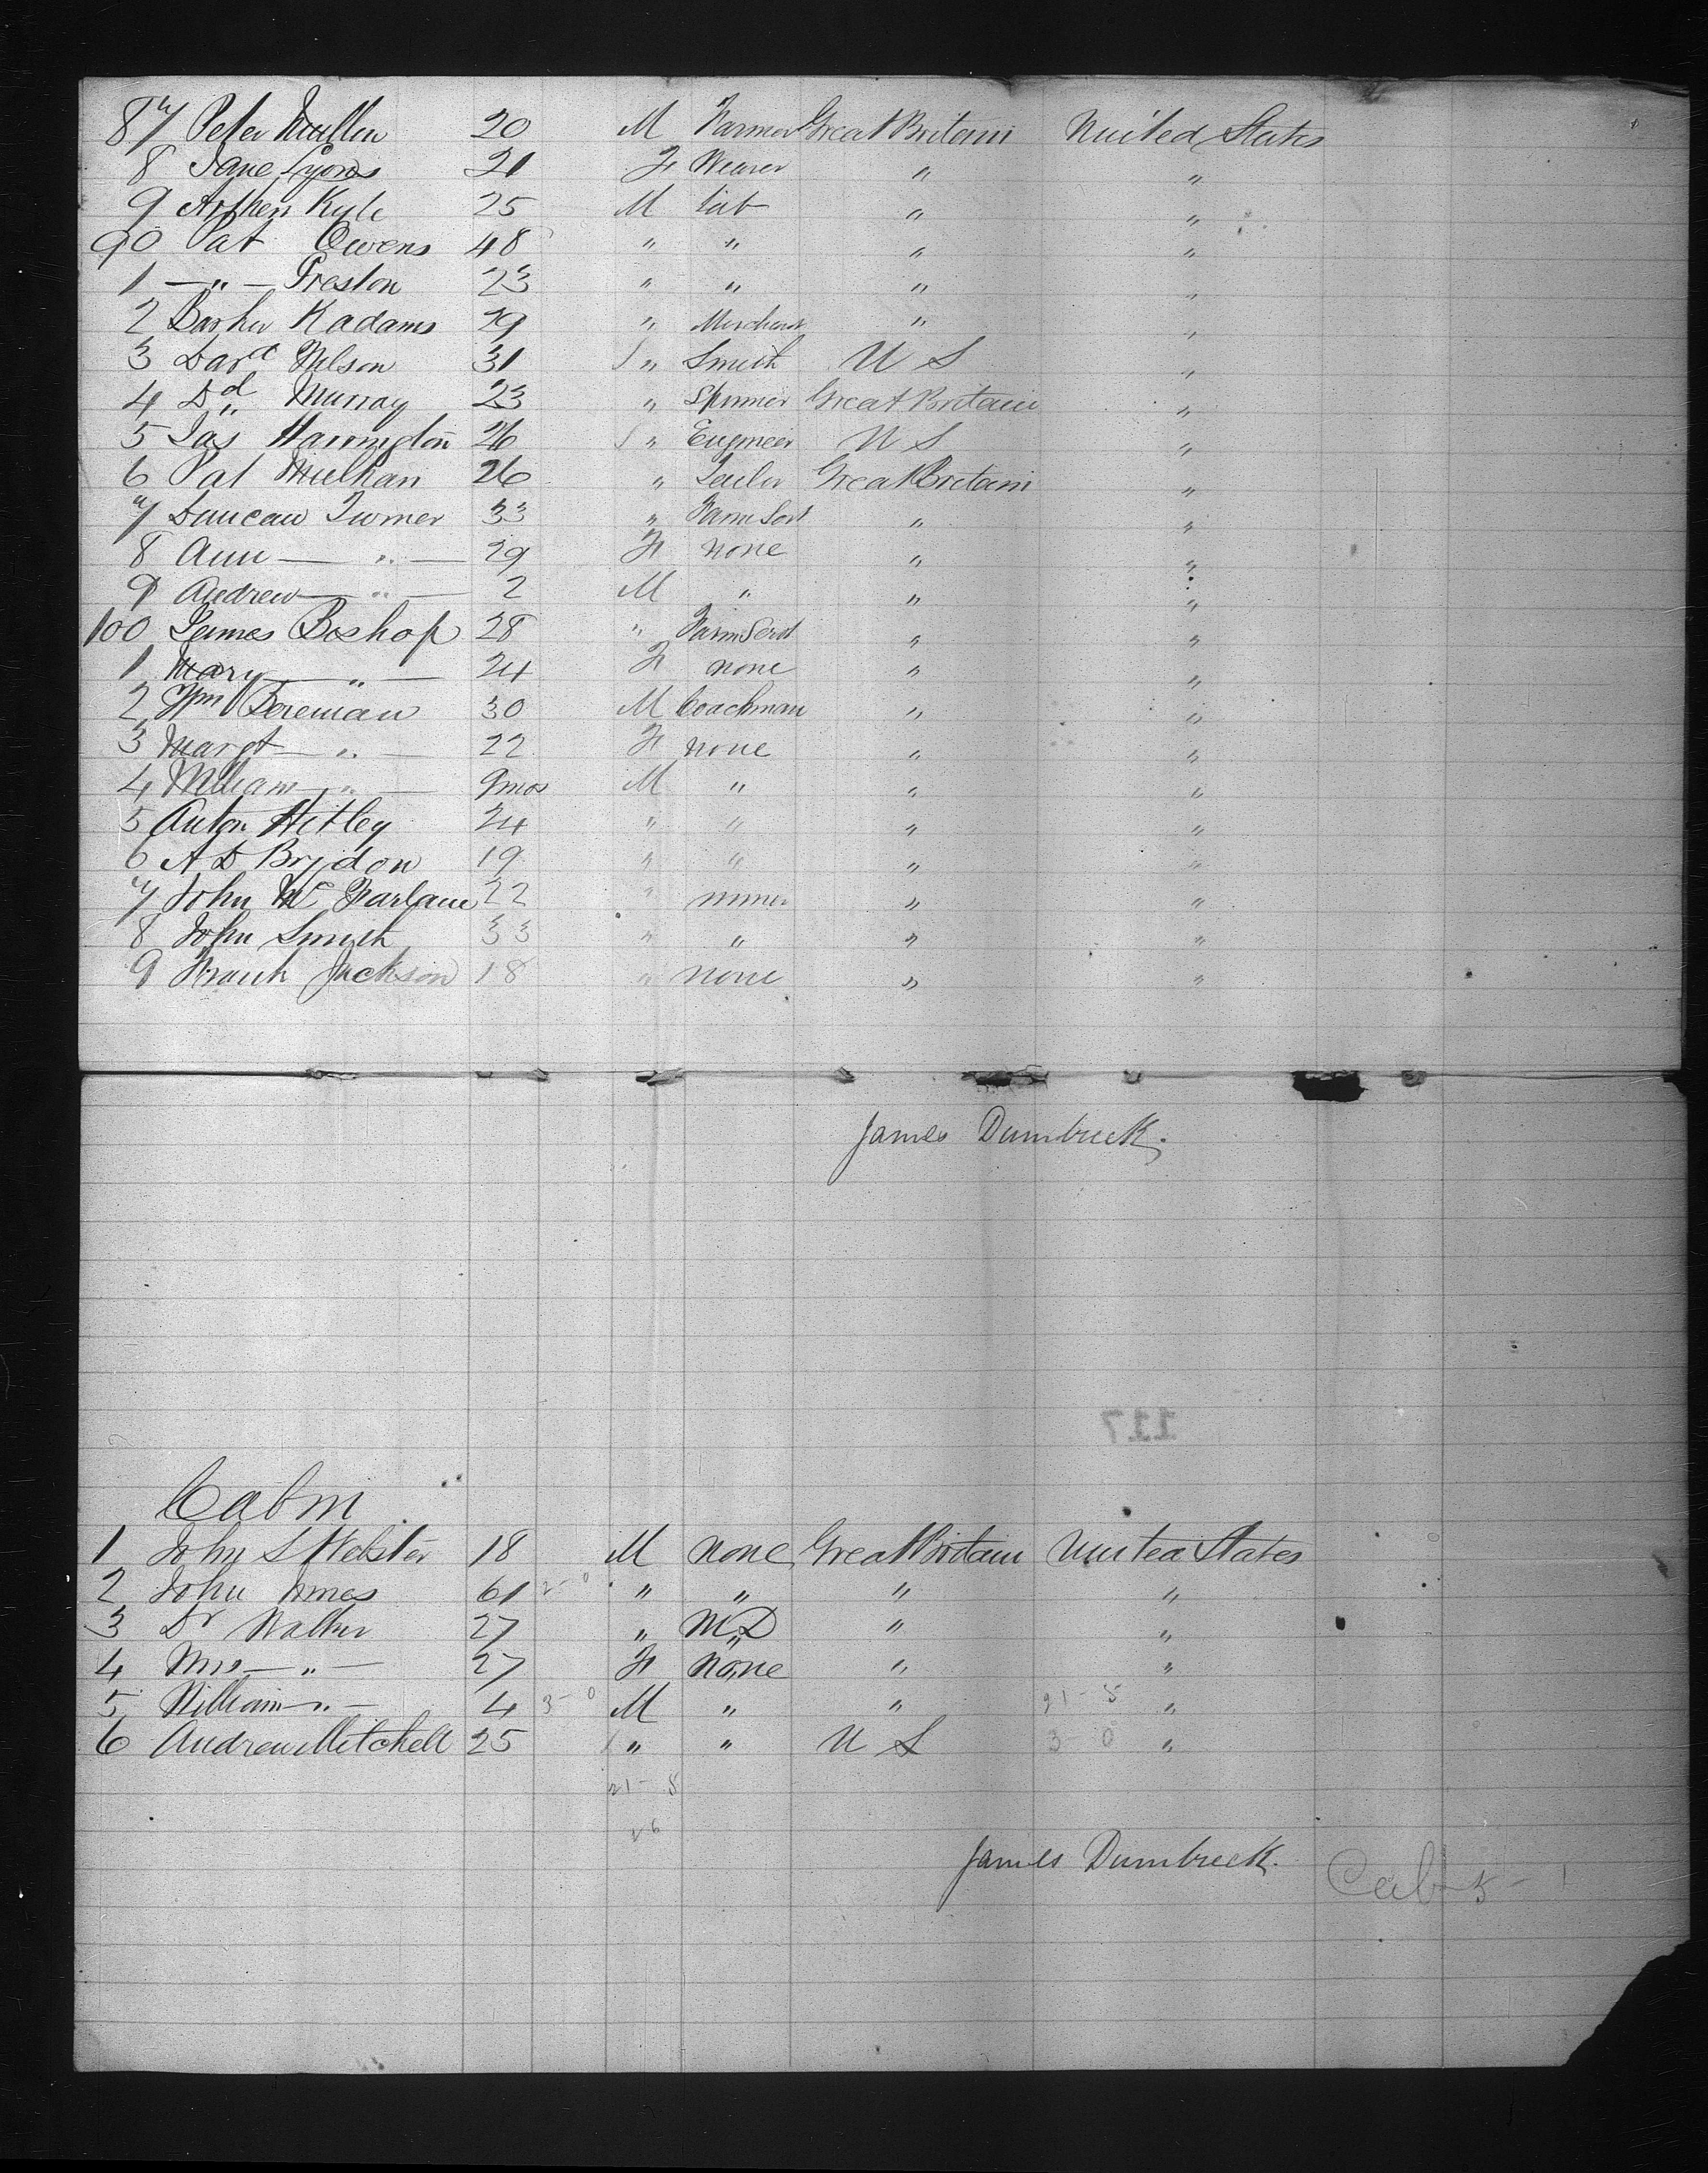 87 Peter Mullen 20 M Farmer Great Britain United States
8 Jane Lyons 21 F Weaver " "
9 Arthur Kyle 25 M Lab " "
90 Pat Owens 48 " " " "
1 — " — Preston 23 " " " "
2 Kadams 29 " Merchant " "
3 Davd Nelson 31 " Smith U S "
4 Dd Murray 23 " Spinner Great Britain "
5 Jas Harrington 26 " Engineer U S "
6 Pat 26 " Great Britain "
7 Duncan Turner 33 " Farm Sert " "
8 Ann — " — 29 F none " "
9 Andrew — " — 2 M " " "
100 James Boshop 28 " Farm Servt " "
1 Mary — " — 24 F none " "
2 Wm Bereman 30 M Coachman " "
3 Margt — " — 22 F none " "
4 William — " — 9mos M " " "
5 Anton Hitley 24 " " " "
6 A D Brydon 19 " " " "
7 John Mc Farlane 22 " miner " "
8 John Smith 33 " " " "
9 Frank Jackson 18 " none " "
James Dumbreck.
117
Cabin
1 John S Webster 18 M none Great Britain United States
2 John 61 2-0 " " " "
3 Dr Walker 27 " M.D " "
4 Mrs — " — 27 F none " "
5 William — " — 4 3-0 M " " 21-8 "
6 Andrew Mitchell 25 " " U S 3 0 "
21-8
26
James Dumbreck.
Cab 5-1